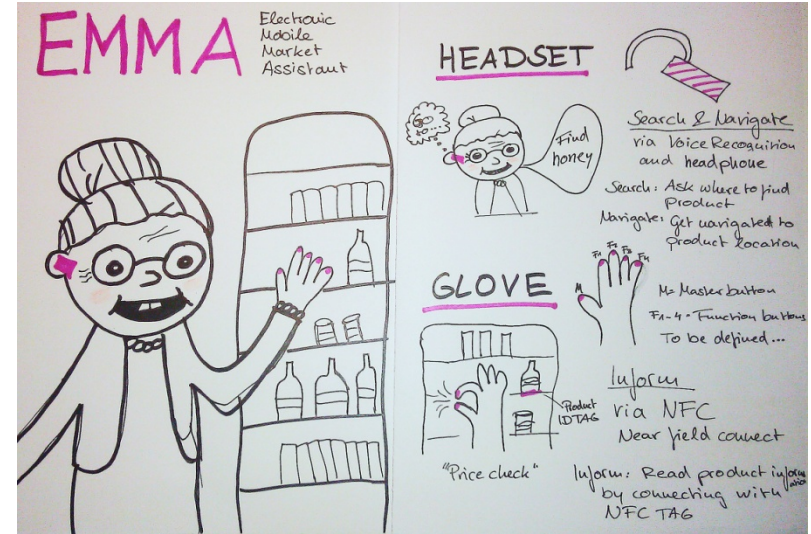 EMMA
Electronic
Mobile
Market
Assistant
HEADSET
Go
to...
Find
honey
Search & Navigate
via Voice Recognition
and headphone
Search: Ask where to find
Product
Navigate: Get navigated to
product location
GLOVE
M
F1
F2
F3
F4
M= Master button
F1-4 = Function buttons
To be defined...
Product
ID TAG
"Price check"
Inform
via NFC
Near field connect
Inform: Read product information
by connecting with
NFC TAG